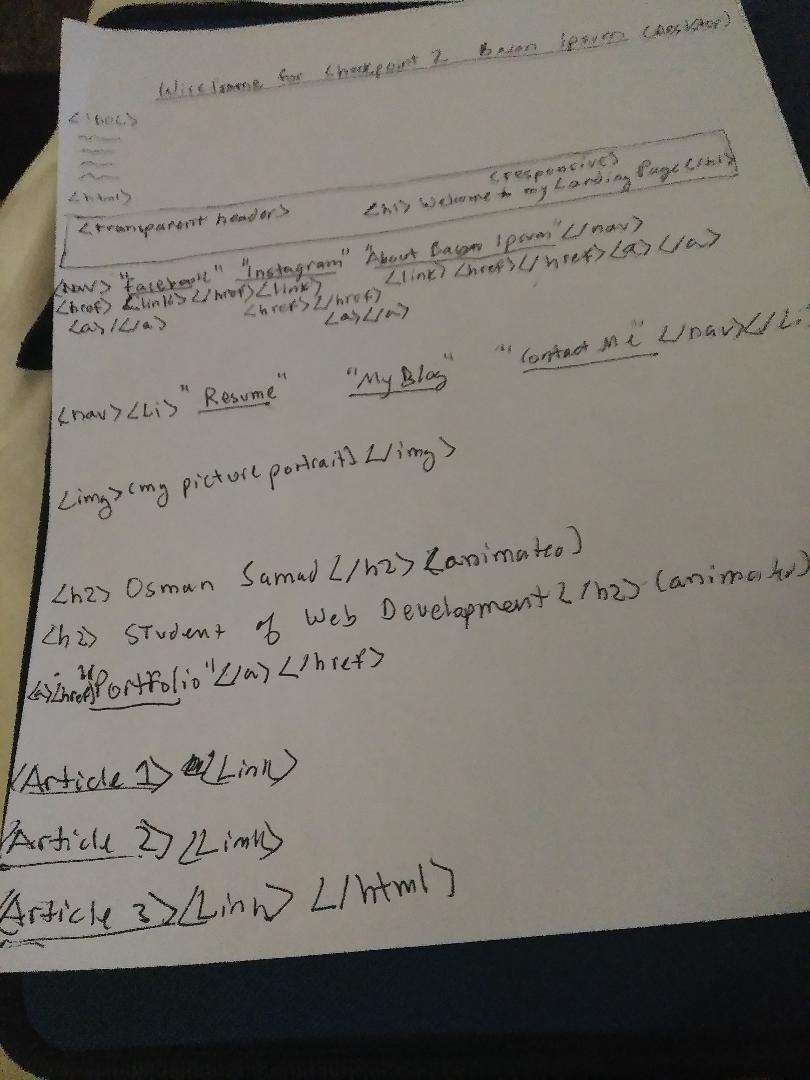 Wireframe for Checkpoint 2 Bacon Ipsum (Desktop)
<!DOC>
<html>
(responsive)
<transparent header> <h1> Welcome to my Landing Page </h1>
<nav> "Facebook" "Instagram" "About Bacon Ipsum" </nav>
<href> <link> </href> <link> <link> <href> </href> <a> </a>
<href> </href>
<a> </a> <a> </a>
<nav> <Li> "Resume" "My Blog" "Contact Me" </nav> </Li
<img> (my picture portrait) </img>
<h2> Osman Samad </h2> (animated)
<h2> Student of Web Development </h2> (animated)
<a> <href> "Portfolio" </a> </href>
<Article 1> <Link>
<Article 2> <Link>
<Article 3> <Link> </html>